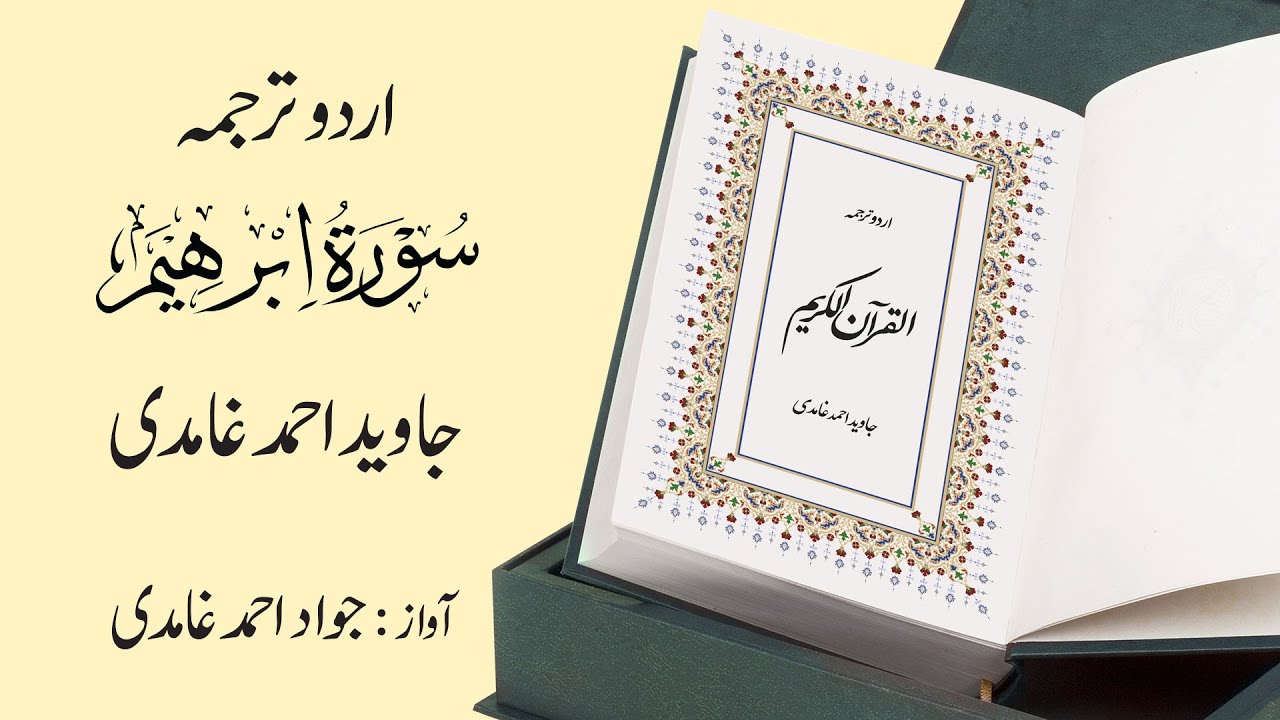 اردو ترجمہ
سُوْرَةُ اِبْرٰهِيْمَ
جاوید احمد غامدی
آواز : جواد احمد غامدی
اردو ترجمہ
القرآن الکریم
جاوید احمد غامدی